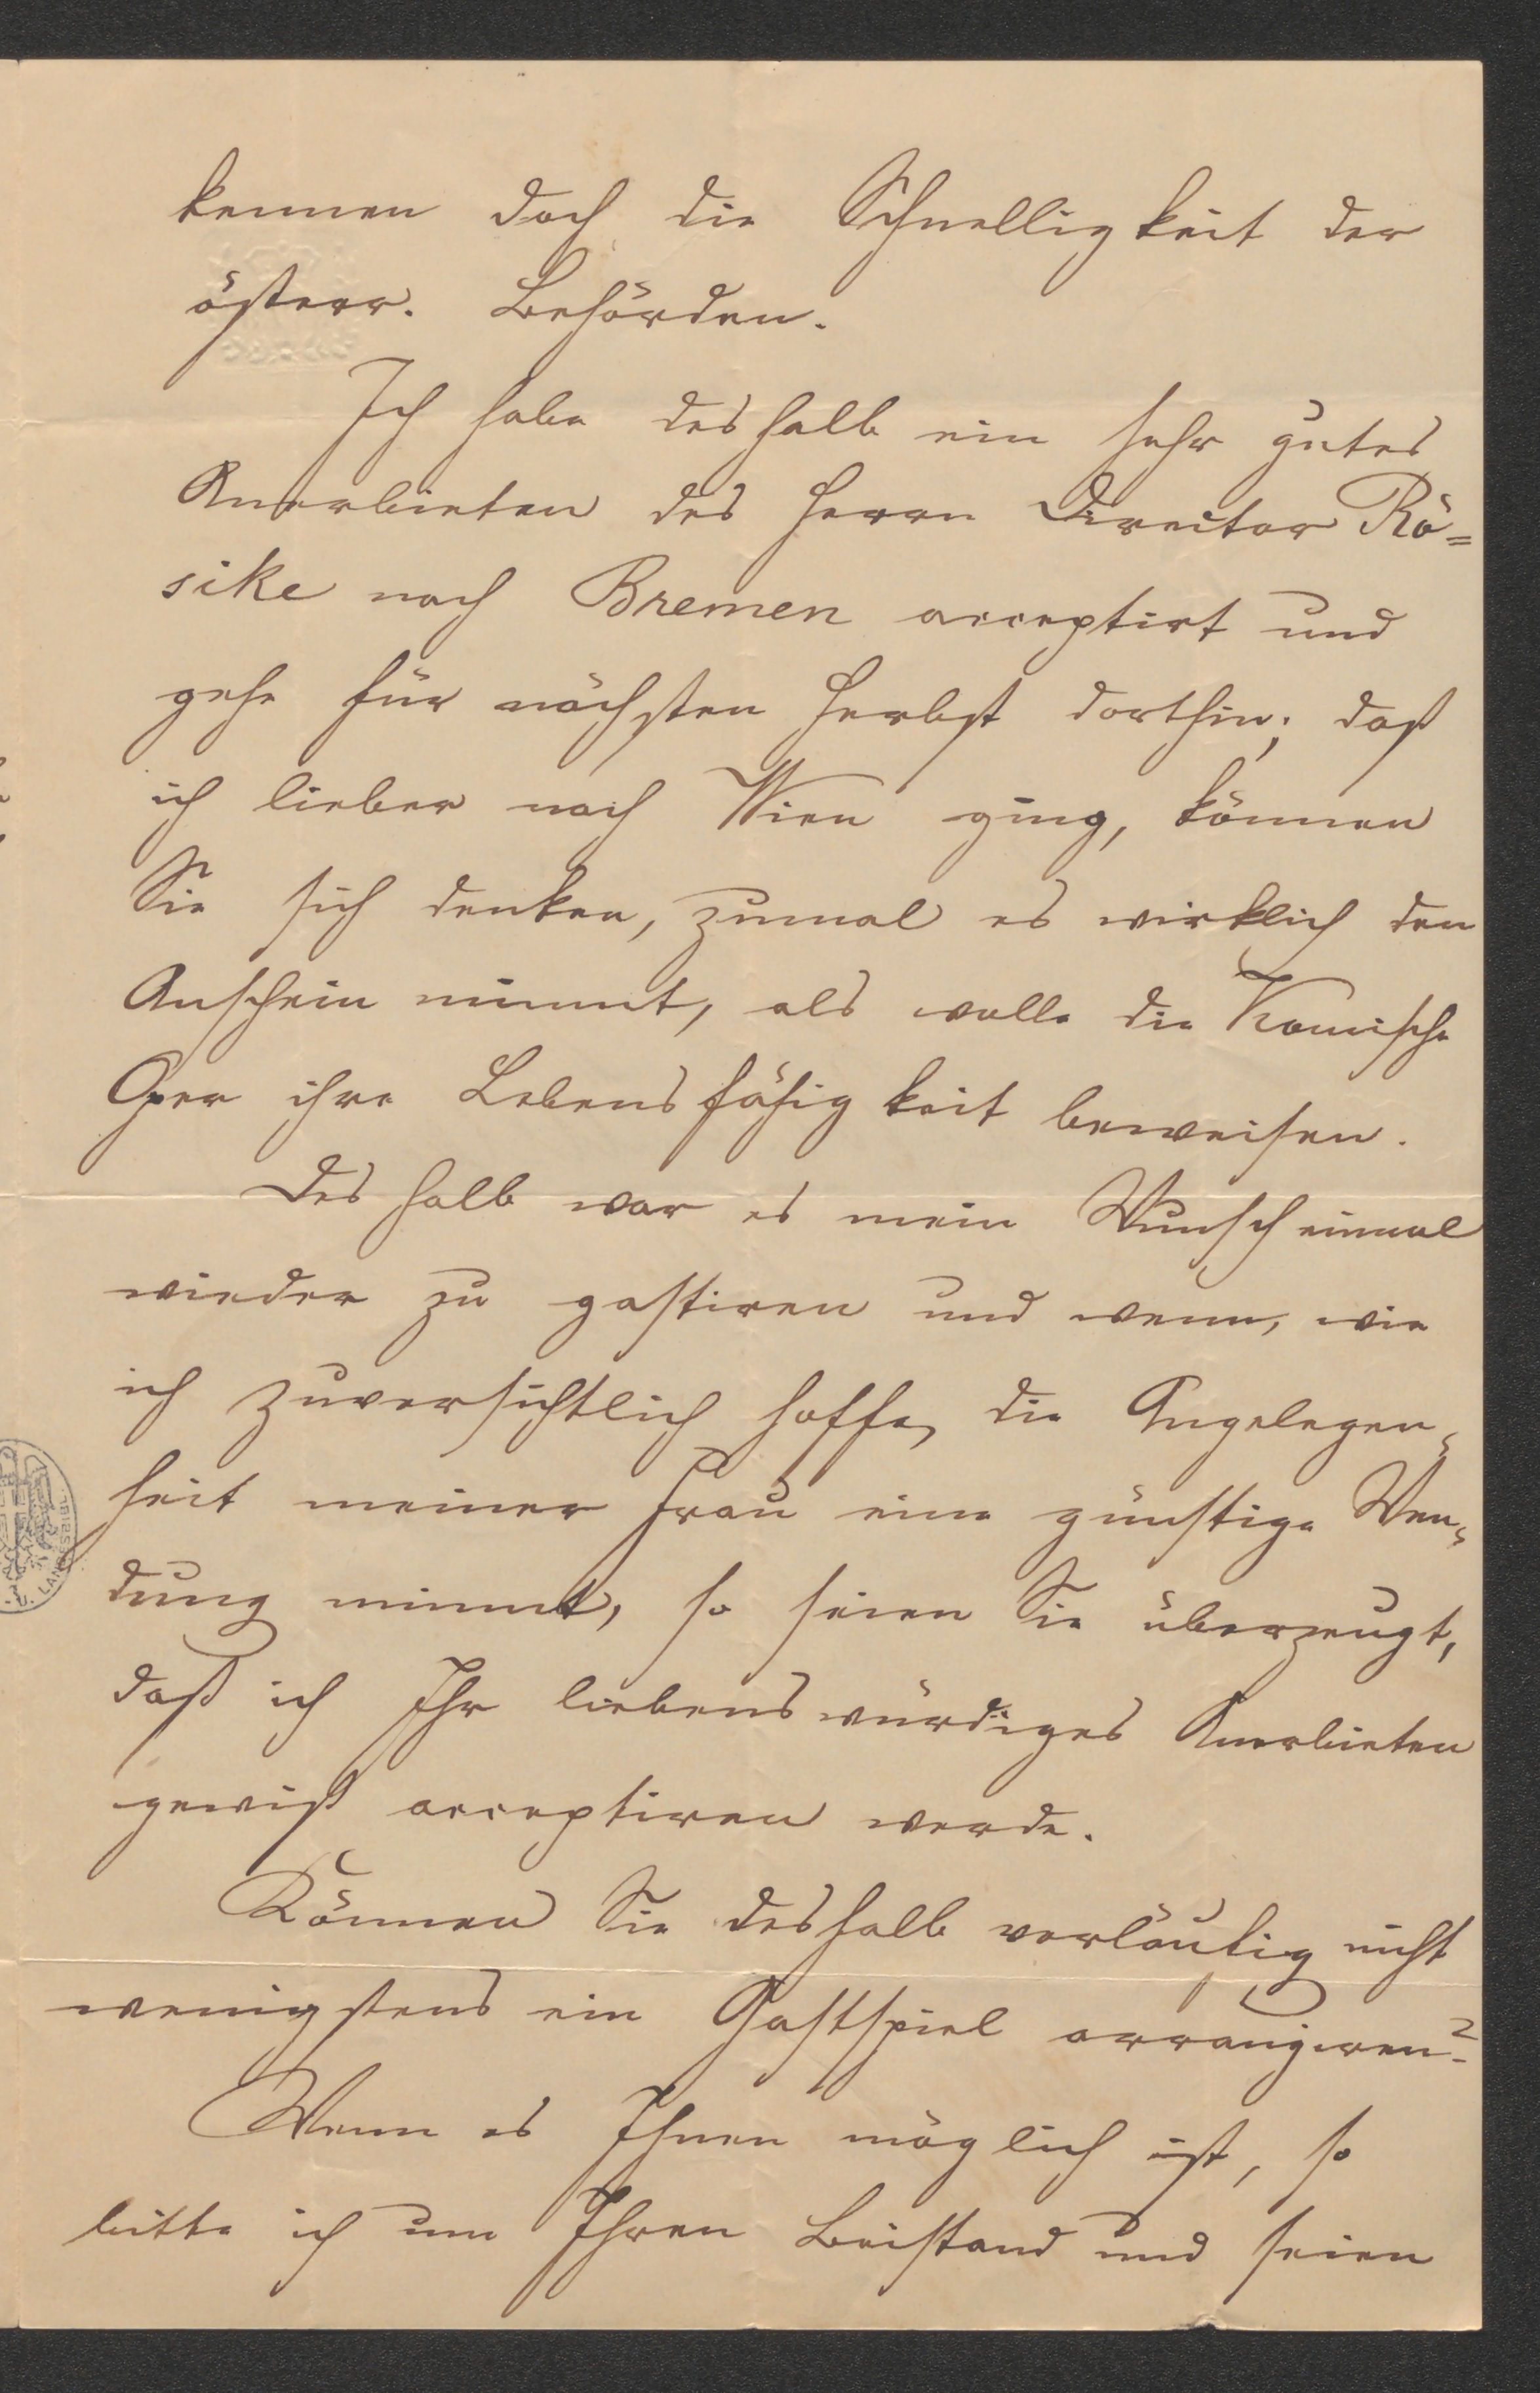 kennen doch die Schnelligkeit der
österr. Behörden.
Ich habe deshalb ein sehr gutes
Anerbieten des Herrn Director Rö=
sike nach Bremen acceptirt und
gehe für nächsten Herbst dorthin; daß
ich lieber nach Wien ging, können
Sie sich denken, zumal es wirklich den
Anschein nimmt, als wolle die Komische
Oper ihre Lebensfähigkeit beweisen.
Deshalb war es mein Wunsch einmal
wieder zu gastiren und wenn, wie
ich zuversichtlich hoffe, die Angelegen=
heit meiner Frau eine günstige Wen=
dung nimmt, so seien Sie überzeugt,
daß ich Ihr liebenswürdiges Anerbieten
gewiß acceptiren werde.
Können Sie deshalb vorläufig nicht
wenigstens ein Gastspiel arrangiren?
Wenn es Ihnen möglich ist, so
bitte ich um Ihren Beistand und seien